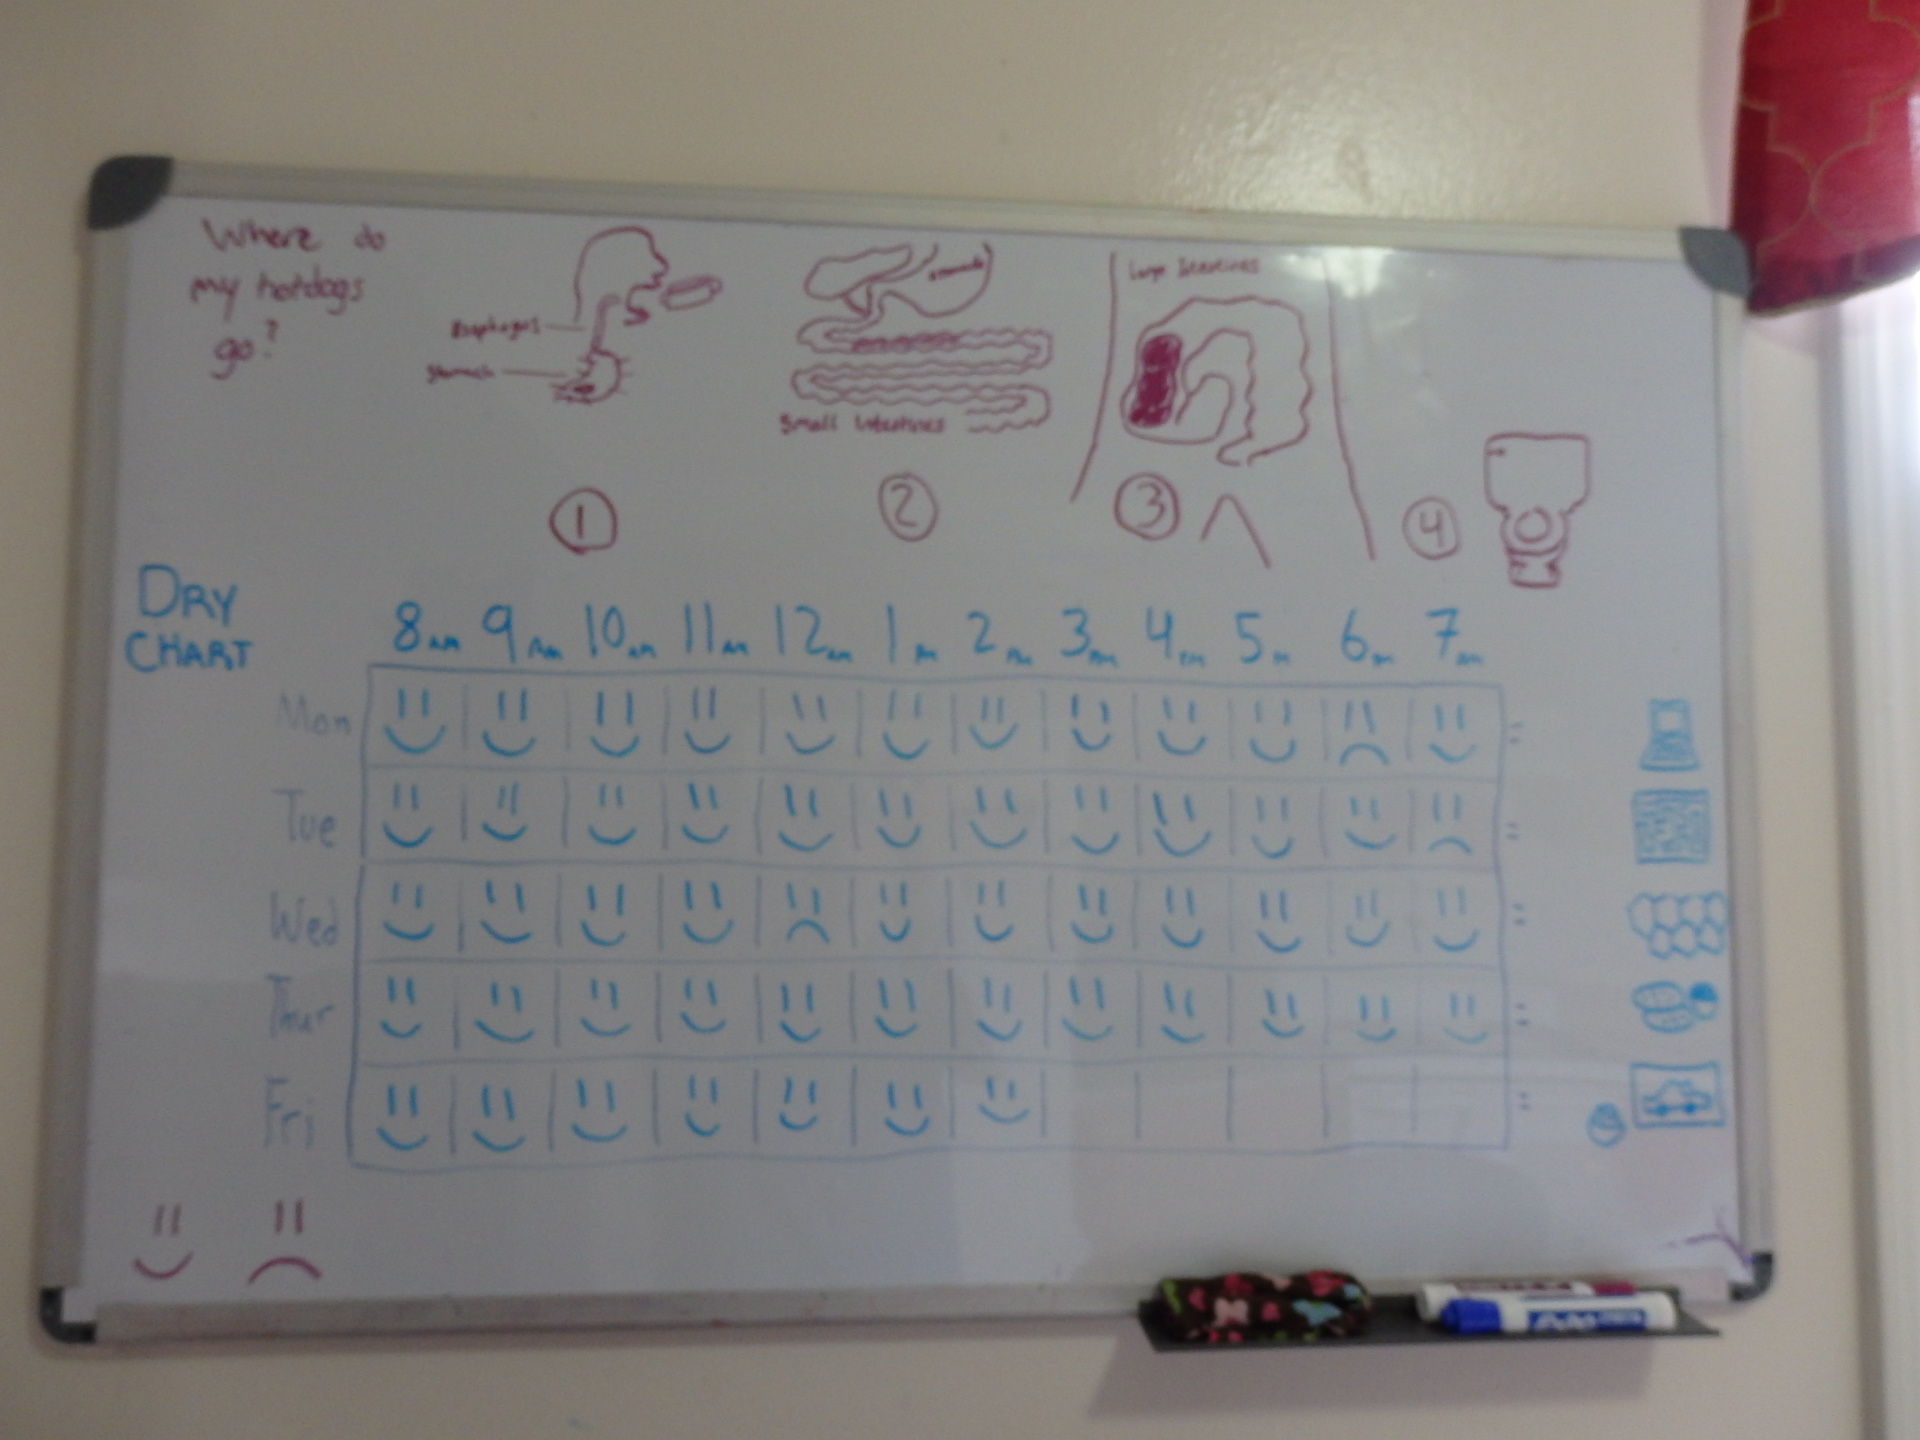 Where do
my hotdogs
go?
Esophagus
Stomach
Stomach
Small Intestines
Large Intestines
1 2 3 4
DRY
CHART
8am 9am 10am 11am 12am 1pm 2pm 3pm 4pm 5pm 6pm 7pm
Mon
Tue
Wed
Thur
Fri